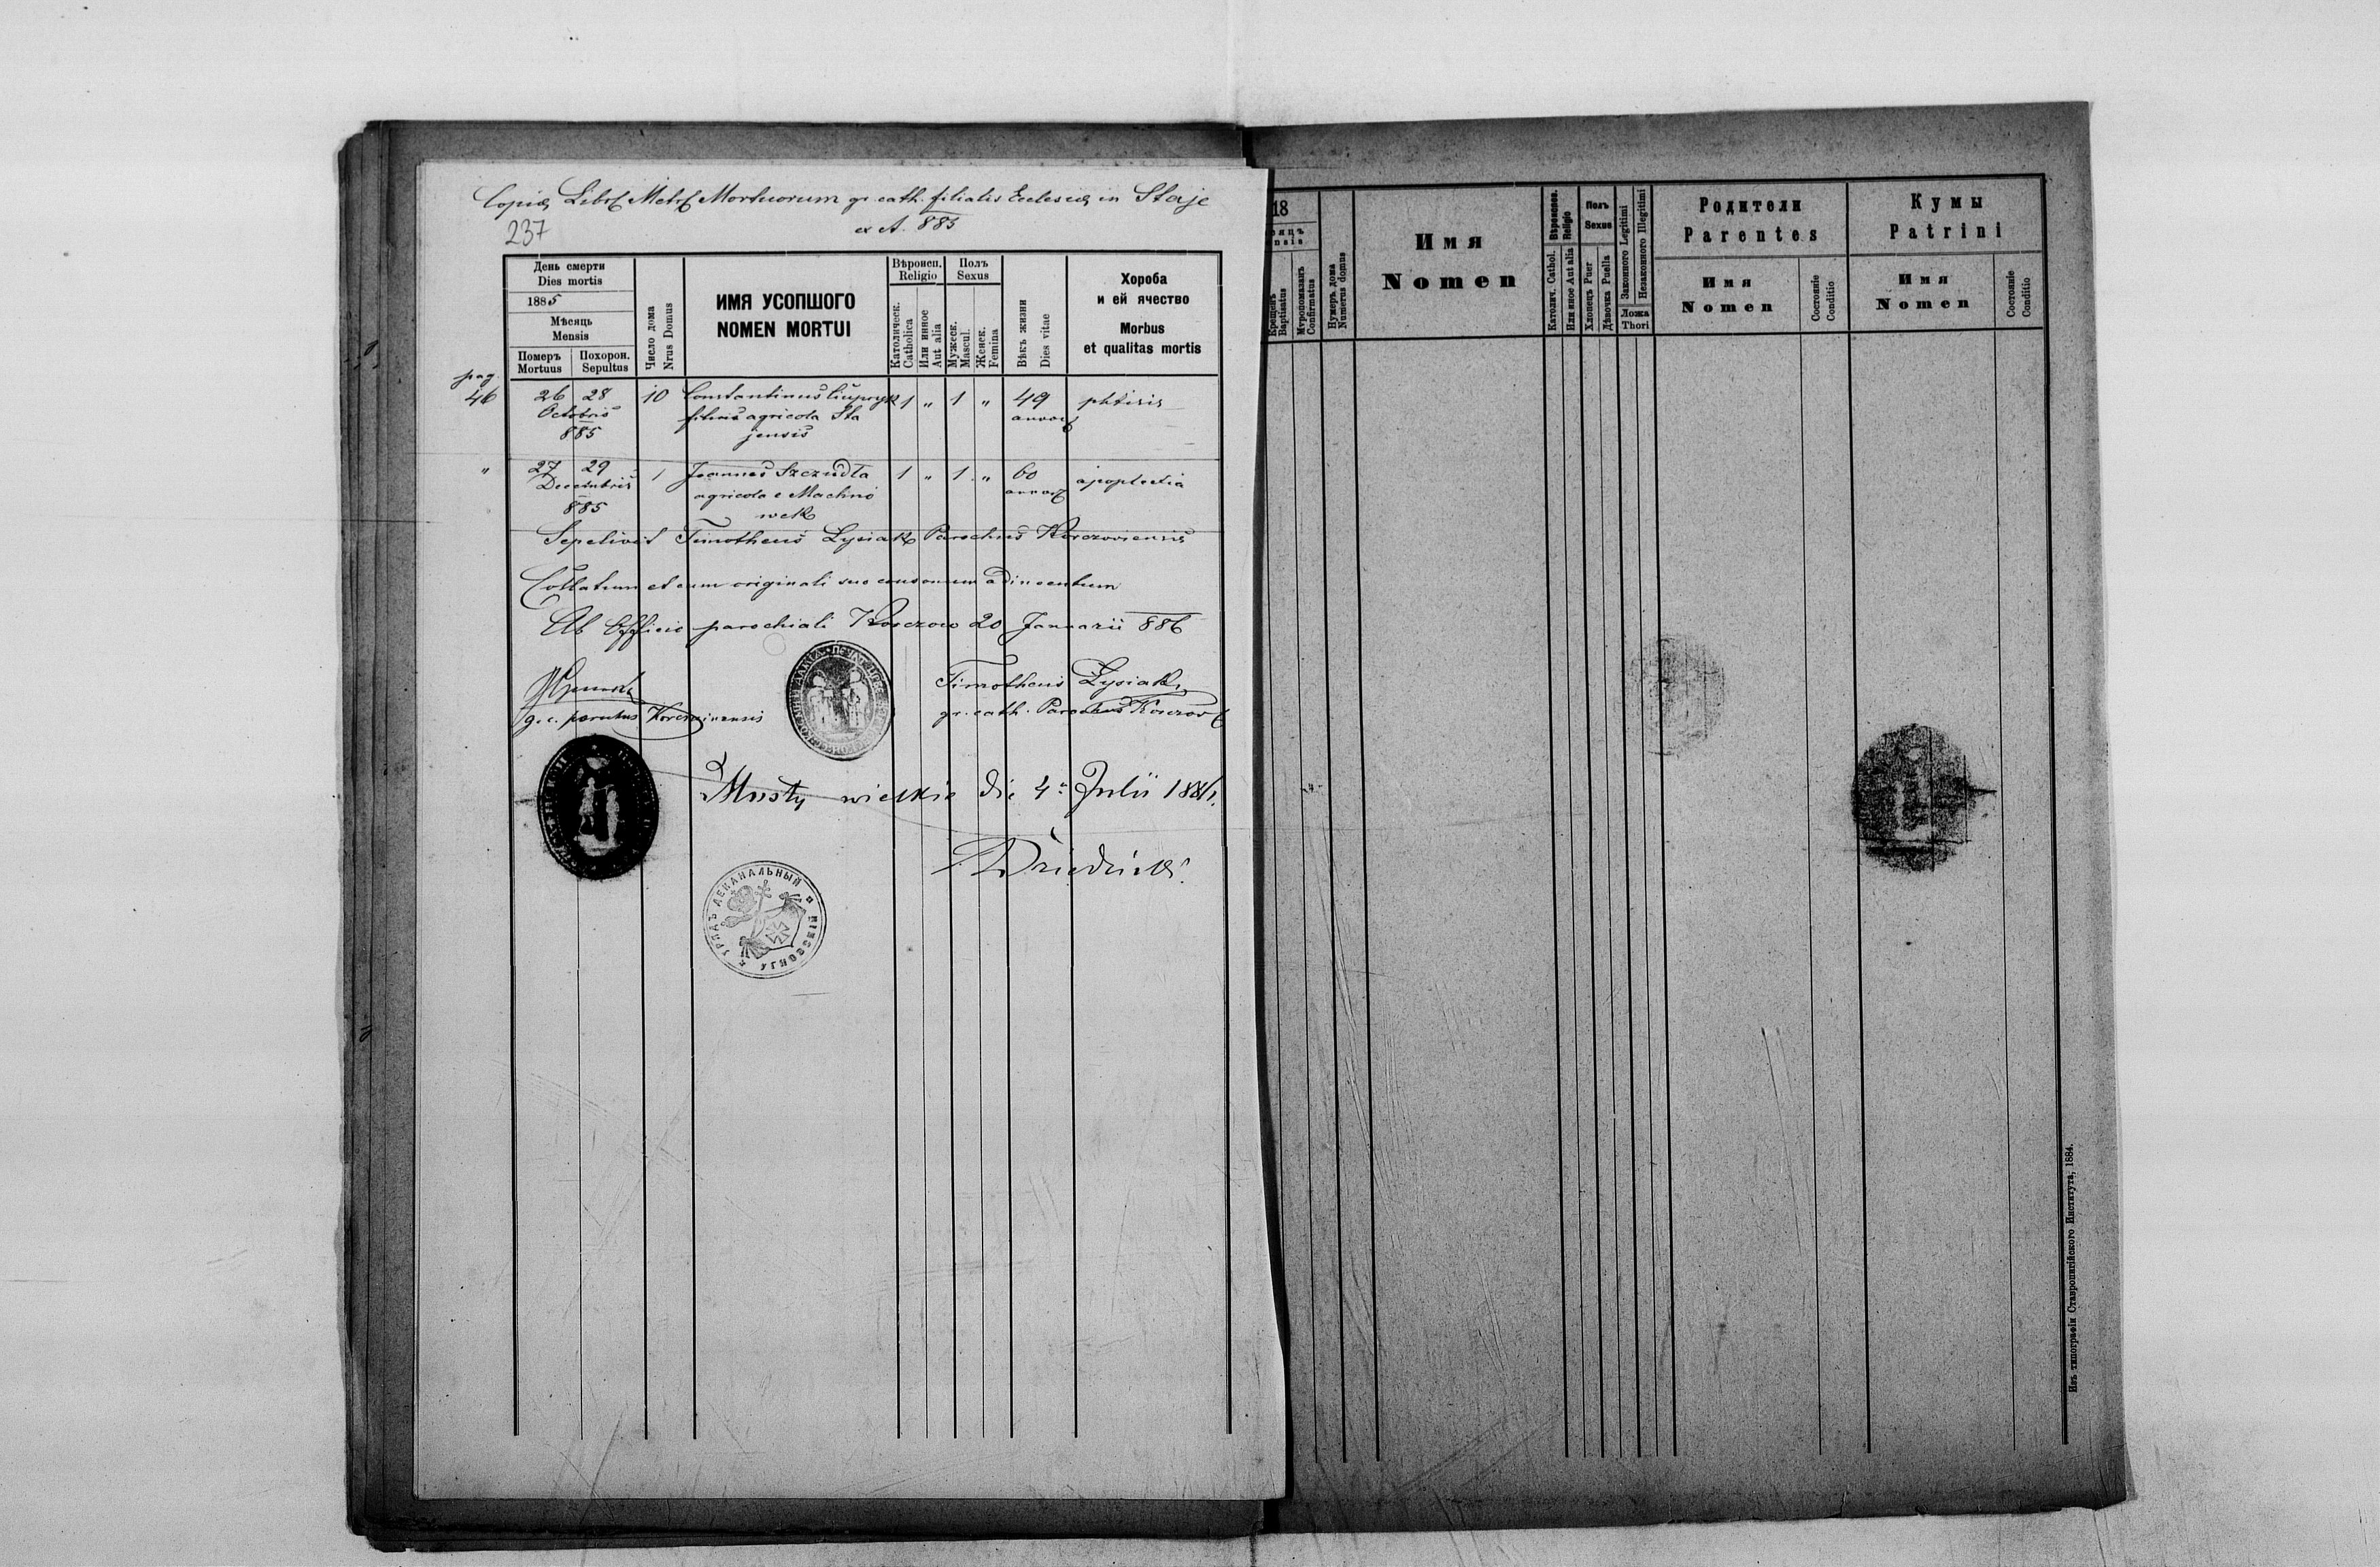 Copia Libri Metr Mortuorum gr. cath. filialis Ecclesiæ in Staje
ex A. 885
237
День смерти
Dies mortis
1885
Мѣсяць
Mensis
Померъ
Mortuus
Похорон.
Sepultus
Число дома
Nrus Domus
ИМЯ УСОПШОГО
NOMEN MORTUI
Вѣроисп.
Religio
Католическ.
Catholica
Или инное
Aut alia
Полъ
Sexus
Мужеск.
Mascul.
Женск.
Femina
Вѣкъ жизни
Dies vitae
Хороба
и ей ячество
Morbus
et qualitas mortis
pag.
46 26 28 10 Constantinus 1 " 1 " 49 phtisis
Octobris filius agricola Sta annor
885 jensis
" 27 29 1 Joannes Szczudła 1 " 1 " 60 apoplectia
Decembris agricola e Machnó annor
885 wek
Sepelivit Timotheus Łysiak Parochus Korczoviensis
Collatum et cum originali suo consonum adinventum
Ab Officio parochiali Korczow 20 Januarii 886
Timotheus Łysiak
g. c. parochus
gr. cath. Parochus Korczov
Mosty wielkie die 4 Julii 1886.
УРЯДЪ ДЕКАНАЛЬНЫЙ УГНОВСКІЙ
18
Крещенъ
Baptisatus
Мѵропомазанъ
Confirmatus
Нумеръ дома
Numerus domus
Имя
Nomen
Вѣроиспов.
Religio
Католич. Cathol.
Или иное Aut alia
Полъ
Sexus
Хлопецъ Puer
Дѣвочка Puella
Законного Legitimi
Незаконного Illegitimi
Ложа
Thori
Родители
Parentes
Имя
Nomen
Состояніе
Conditio
Кумы
Patrini
Имя
Nomen
Состояніе
Conditio
Изъ типографіи Ставропигійского Института, 1884.